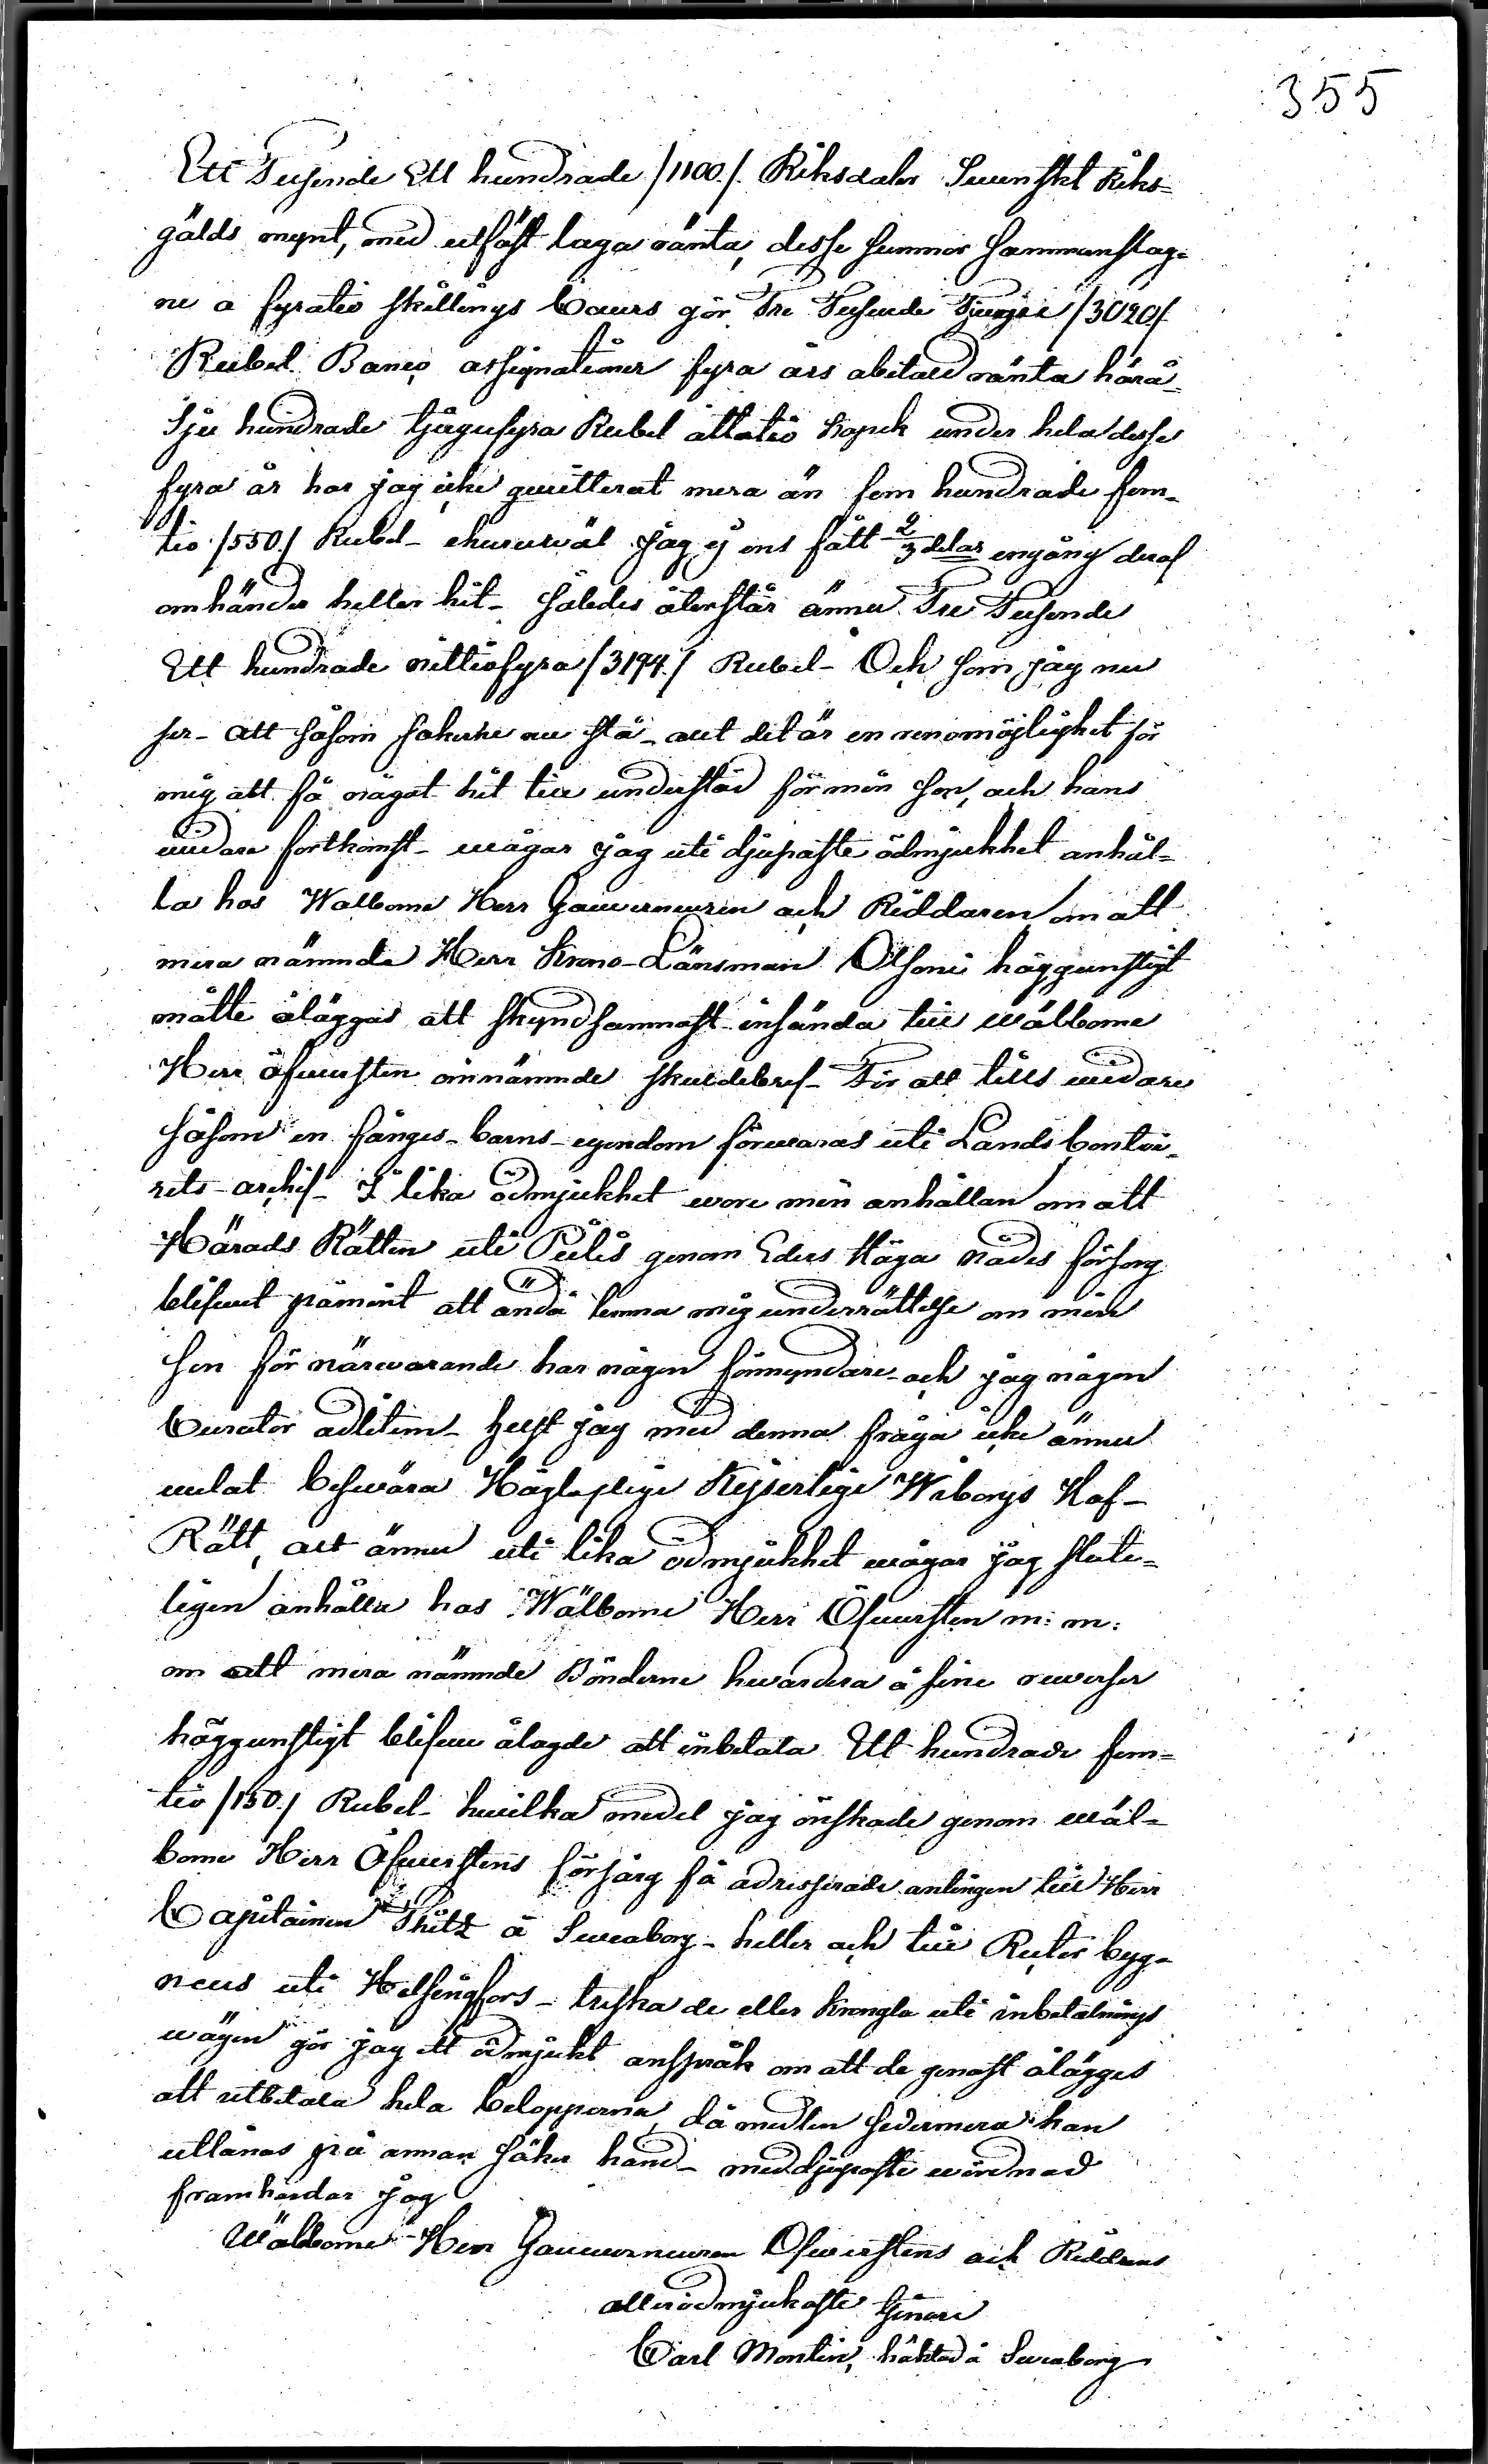 355
Ett Tusende Ett hundrade /1100./. Riksdaler Swenskt Riks-
gälds mynt, med utfäst laga ränta, desse summor sammanslag-
ne a fyratio skillings Cours gör Tre Tusende Tjugu /3020/.
Rubel Banco assignationer fyra års obetald ränta härå-
Sju hundrade tjugufyra Rubel åttatio kopek under hela desse
fyra år har jag icke quitterat mera än fem hundrade fem-
tio /550./ Rubel - ehuruwäl jag ej ens fått 2/3 delar engång deraf
omhänder heller hit - således återstår ännu Tre Tusende
Ett hundrade nittiofyra /3194./ Rubel - Och som jag nu
ser - att såsom sakerne nu stå - att det är en ren omöjlighet för
mig att få något hit till understöd för min son, och hans
widare fortkomst - wågar jag uti djupaste ödmjukhet anhål-
la hos Walborne Herr Gouverneuren och Riddaren om att
mera nämnde Herr Krono-Länsman Olsoni höggunstigt
måtte åläggas att skyndsammast insända till wälborne
Herr öfwersten omnämnde skuldebref - För att tills widare
såsom en fånges-barns-egendom förwaras uti Lands Conto-
rets-archif - I lika ödmjukhet wore min anhållan om att
Härads Rätten uti Pielis genom Eders Höga nådes försorg
blefwet påmint att ändå lemna mig underrättelse om min
son för närwarande har någon förmyndare - och jag någon
Curator adlitem - helst jag med denna fråga icke ännu
welat beswära Höglaflige Kejserlige Wiborgs Hof-
Rätt, att ännu uti lika ödmjukhet wågar jag slute-
ligen anhålla hos Wälborne Herr Öfwersten m: m:
om att mera nämnde Bönderne hwardera å sine reverser
höggunstigt blifwa ålagde att inbetala Ett hundrade fem-
tio /150./ Rubel - hwilka medel jag önskade genom wäl-
borne Herr Öfwerstens försorg få adresserade antingen till Herr
Capitainen Thitz å Sweaborg - heller och till Ruter byg-
neus uti Helsingfors - tredska de eller krongla uti inbetalnings
wägen gör jag ett ödmjukt anspråk om att de genast åläggas
att utbetala hela belopperna, då medlen sedermera kan
utlånas på annan säker hand - med djupaste wördnad
framhärdar jag
Wälborne Herr Gouverneuren Öfwerstens och Riddarens
allerödmjukaste tjenare
Carl Montin, häktad å Sweaborg